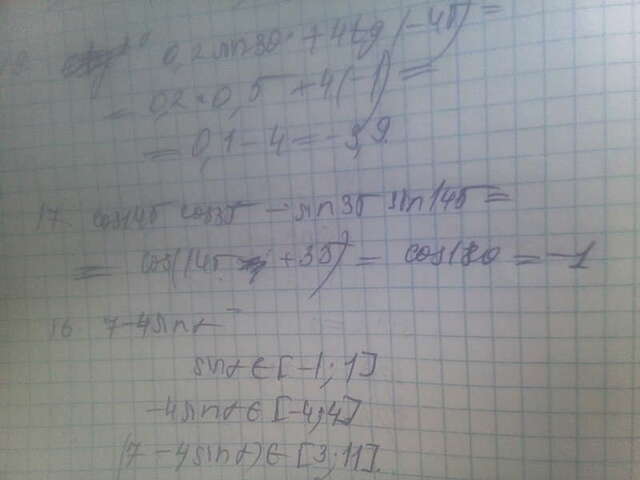 0,2 sin 30° + 4tg(-45) =
= 0,2 * 0,5 + 4(-1) =
= 0,1 - 4 = -3,9.
17. cos145 cos35 - sin35 sin145 =
= cos(145 + 35) = cos180 = -1
16 7-4sinα
sinα ∈ [-1; 1]
-4sinα ∈ [-4; 4]
(7 - 4sinα) ∈ [3; 11].